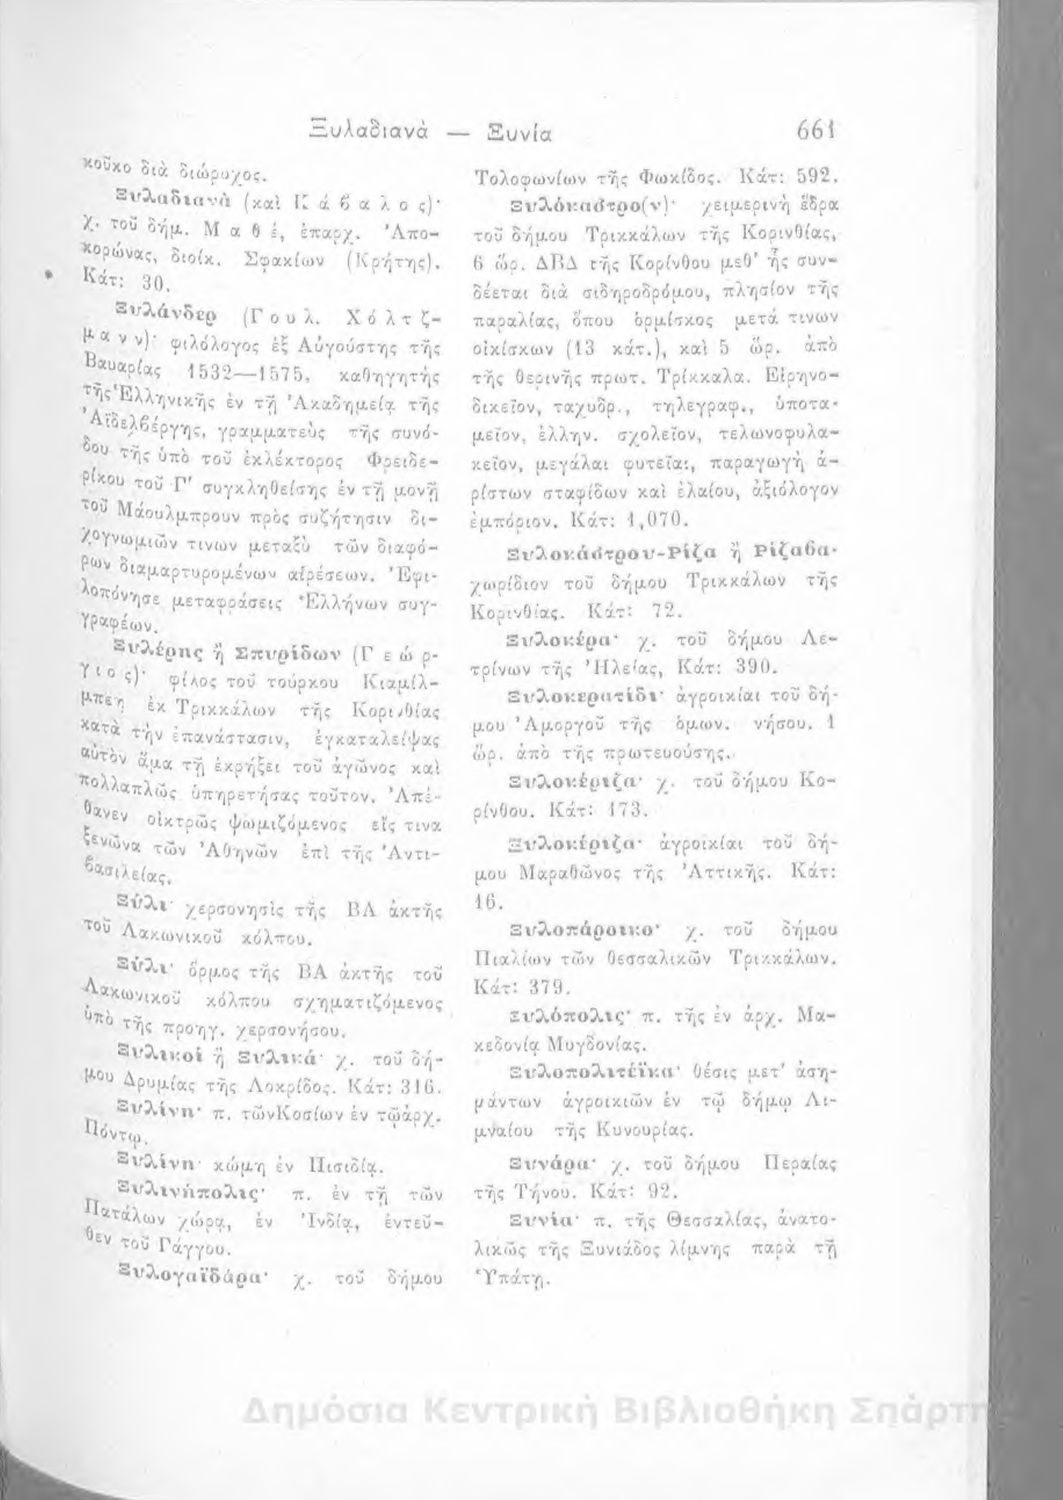 Ξυλαδιανὰ — Ξυνία 661
κοῦκο διὰ διώρυχος.
Ξυλαδιανὰ (καὶ Κάβαλος)·
χ. τοῦ δήμ. Μαθέ, ἐπαρχ. Ἀπο-
κορώνας, διοίκ. Σφακίων (Κρήτης).
Κάτ: 30.
Ξυλάνδερ (Γουλ. Χόλτζ-
μανν)· φιλόλογος ἐξ Αὐγούστης τῆς
Βαυαρίας 1532—1575, καθηγητὴς
τῆς Ἑλληνικῆς ἐν τῇ Ἀκαδημείᾳ τῆς
Ἀϊδελβέργης, γραμματεὺς τῆς συνό-
δου τῆς ὑπὸ τοῦ ἐκλέκτορος Φρειδε-
ρίκου τοῦ Γ′ συγκληθείσης ἐν τῇ μονῇ
τοῦ Μάουλμπρουν πρὸς συζήτησιν δι-
χογνωμιῶν τινων μεταξὺ τῶν διαφό-
ρων διαμαρτυρομένων αἱρέσεων. Ἐφι-
λοπόνησε μεταφράσεις Ἑλλήνων συγ-
γραφέων.
Ξυλέρης ἢ Σπυρίδων (Γεώρ-
γιος)· φίλος τοῦ τούρκου Κιαμίλ-
μπεη ἐκ Τρικκάλων τῆς Κορινθίας
κατὰ τὴν ἐπανάστασιν, ἐγκαταλείψας
αὐτὸν ἅμα τῇ ἐκρήξει τοῦ ἀγῶνος καὶ
πολλαπλῶς ὑπηρετήσας τοῦτον. Ἀπέ-
θανεν οἰκτρῶς ψωμιζόμενος εἴς τινα
ξενῶνα τῶν Ἀθηνῶν ἐπὶ τῆς Ἀντι-
βασιλείας.
Ξύλι· χερσονησὶς τῆς ΒΑ ἀκτῆς
τοῦ Λακωνικοῦ κόλπου.
Ξύλι· ὅρμος τῆς ΒΑ ἀκτῆς τοῦ
Λακωνικοῦ κόλπου σχηματιζόμενος
ὑπὸ τῆς προηγ. χερσονήσου.
Ξυλικοὶ ἢ Ξυλικά· χ. τοῦ δή-
μου Δρυμίας τῆς Λοκρίδος. Κάτ: 316.
Ξυλίνη· π. τῶνΚοσίων ἐν τῷἀρχ.
Πόντῳ.
Ξυλίνη· κώμη ἐν Πισιδίᾳ.
Ξυλινήπολις· π. ἐν τῇ τῶν
Πατάλων χώρᾳ, ἐν Ἰνδίᾳ, ἐντεῦ-
θεν τοῦ Γάγγου.
Ξυλογαϊδάρα· χ. τοῦ δήμου
Τολοφωνίων τῆς Φωκίδος. Κάτ: 592.
Ξυλόκαστρο(ν)· χειμερινὴ ἕδρα
τοῦ δήμου Τρικκάλων τῆς Κορινθίας,
6 ὥρ. ΔΒΔ τῆς Κορίνθου μεθ' ἧς συν-
δέεται διὰ σιδηροδρόμου, πλησίον τῆς
παραλίας, ὅπου ὁρμίσκος μετά τινων
οἰκίσκων (13 κάτ.), καὶ 5 ὥρ. ἀπὸ
τῆς θερινῆς πρωτ. Τρίκκαλα. Εἰρηνο-
δικεῖον, ταχυδρ., τηλεγραφ., ὑποτα-
μεῖον, ἑλλην. σχολεῖον, τελωνοφυλα-
κεῖον, μεγάλαι φυτεῖαι, παραγωγὴ ἀ-
ρίστων σταφίδων καὶ ἐλαίου, ἀξιόλογον
ἐμπόριον. Κάτ: 1,070.
Ξυλοκάστρου-Ρίζα ἢ Ριζαβα·
χωρίδιον τοῦ δήμου Τρικκάλων τῆς
Κορινθίας. Κάτ: 72.
Ξυλοκέρα· χ. τοῦ δήμου Λε-
τρίνων τῆς Ἠλείας, Κάτ: 390.
Ξυλοκερατίδι· ἀγροικίαι τοῦ δή-
μου Ἀμοργοῦ τῆς ὁμων. νήσου. 1
ὥρ. ἀπὸ τῆς πρωτευούσης.
Ξυλοκέριζα· χ. τοῦ δήμου Κο-
ρίνθου. Κάτ: 173.
Ξυλοκέριζα· ἀγροικίαι τοῦ δή-
μου Μαραθῶνος τῆς Ἀττικῆς. Κάτ:
16.
Ξυλοπάροικο· χ. τοῦ δήμου
Πιαλίων τῶν Θεσσαλικῶν Τρικκάλων.
Κάτ: 379.
Ξυλόπολις· π. τῆς ἐν ἀρχ. Μα-
κεδονίᾳ Μυγδονίας.
Ξυλοπολιτέϊκα· θέσις μετ' ἀση-
μάντων ἀγροικιῶν ἐν τῷ δήμῳ Λι-
μναίου τῆς Κυνουρίας.
Ξυνάρα· χ. τοῦ δήμου Περαίας
τῆς Τήνου. Κάτ: 92.
Ξυνία· π. τῆς Θεσσαλίας, ἀνατο-
λικῶς τῆς Ξυνιάδος λίμνης παρὰ τῇ
Ὑπάτῃ.
Δημόσια Κεντρική Βιβλιοθήκη Σπάρτη